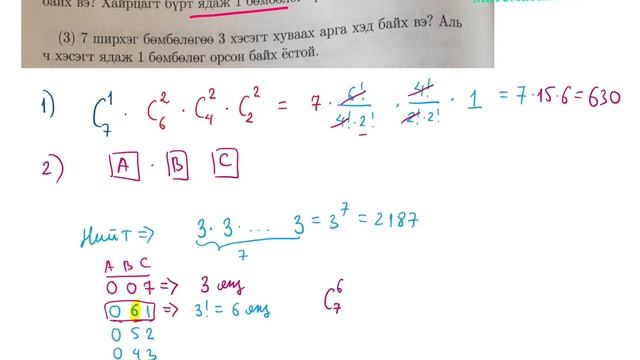 байх вэ? Хайрцагт бүрт ядаж 1 бөмбөлөг
(3) 7 ширхэг бөмбөлөгөө 3 хэсэгт хуваах арга хэд байх вэ? Аль
ч хэсэгт ядаж 1 бөмбөлөг орсон байх ёстой.
1) C₇¹ · C₆² · C₄² · C₂² = 7 · 6!/(4!·2!) · 4!/(2!·2!) · 1 = 7·15·6=630
2) A · B C
Нийт => 3·3·... 3 = 3⁷ = 2187
7
A B C
0 0 7 => 3 янз C₇⁶
0 6 1 => 3! = 6 янз
0 5 2
0 4 3